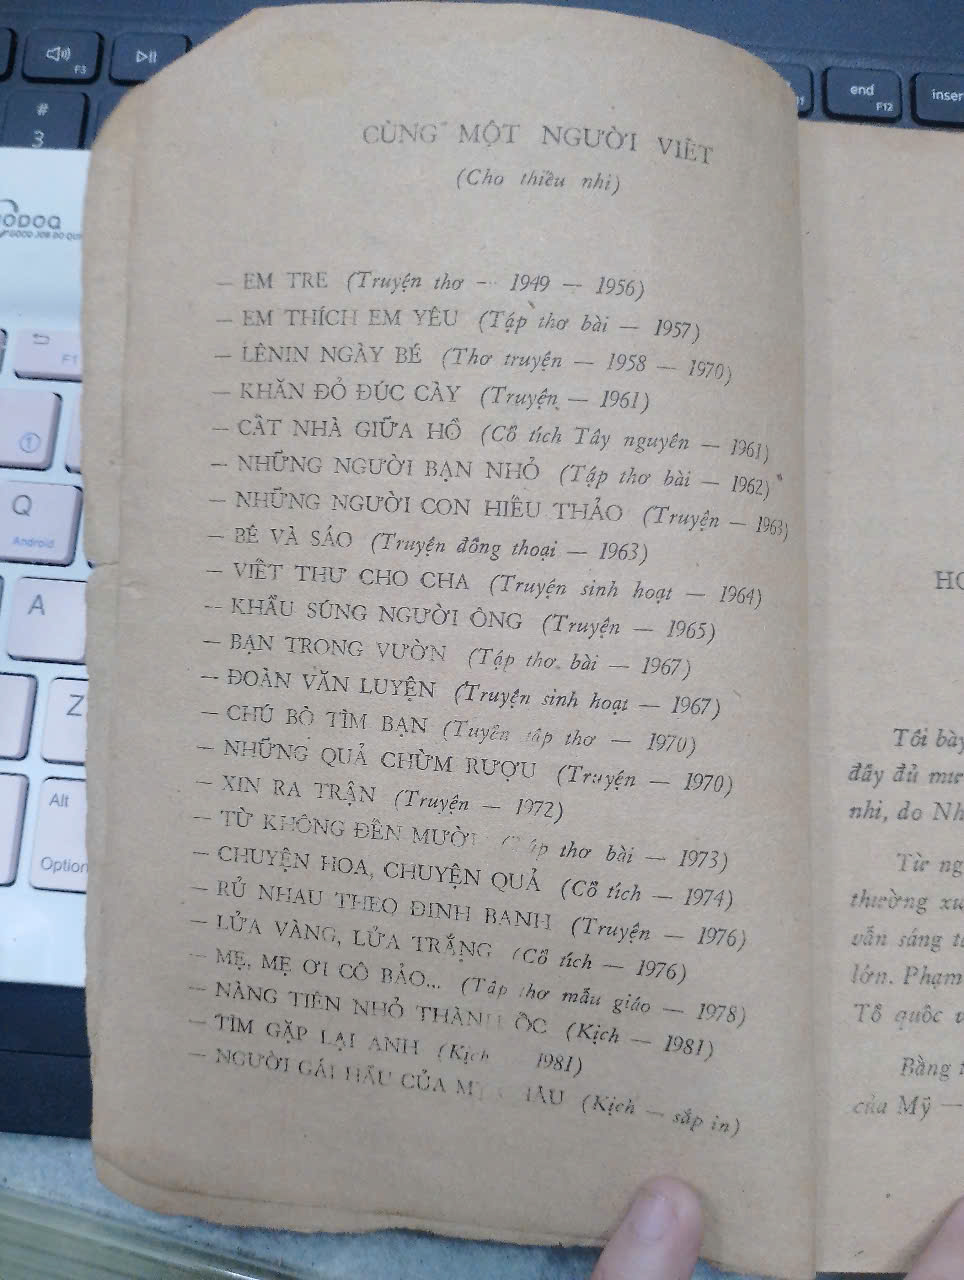 F3
F12
end
inser
#
3
GOOD JOB DO QUI
F1
Q
Android
A
Z
Alt
Option
CÙNG MỘT NGƯỜI VIẾT
(Cho thiếu nhi)
— EM TRE (Truyện thơ — 1949 — 1956)
— EM THÍCH EM YÊU (Tập thơ bài — 1957)
— LÊNIN NGÀY BÉ (Thơ truyện — 1958 — 1970)
— KHĂN ĐỎ ĐỨC CÀY (Truyện — 1961)
— CẤT NHÀ GIỮA HỒ (Cổ tích Tây nguyên — 1961)
— NHỮNG NGƯỜI BẠN NHỎ (Tập thơ bài — 1962)
— NHỮNG NGƯỜI CON HIẾU THẢO (Truyện — 1963)
— BÉ VÀ SÁO (Truyện đồng thoại — 1963)
— VIẾT THƯ CHO CHA (Truyện sinh hoạt — 1964)
— KHẨU SÚNG NGƯỜI ÔNG (Truyện — 1965)
— BẠN TRONG VƯỜN (Tập thơ bài — 1967)
— ĐOÀN VĂN LUYỆN (Truyện sinh hoạt — 1967)
— CHÚ BÒ TÌM BẠN (Tuyển tập thơ — 1970)
— NHỮNG QUẢ CHÙM RƯỢU (Truyện — 1970)
— XIN RA TRẬN (Truyện — 1972)
— TỪ KHÔNG ĐẾN MƯỜI (Tập thơ bài — 1973)
— CHUYỆN HOA, CHUYỆN QUẢ (Cổ tích — 1974)
— RỦ NHAU THEO ĐINH BANH (Truyện — 1976)
— LỬA VÀNG, LỬA TRẮNG (Cổ tích — 1976)
— MẸ, MẸ ƠI CÔ BẢO... (Tập thơ mẫu giáo — 1978)
— NÀNG TIÊN NHỎ THÀNH ỐC (Kịch — 1981)
— TÌM GẶP LẠI ANH (Kịch 1981)
— NGƯỜI GÁI HẦU CỦA (Kịch — sắp in)
HO
Tôi bày
đầy đủ mư
nhi, do Nh
Từ ng
thường xu
vẫn sáng t
lớn. Phạm
Tổ quốc v
Bằng t
của Mỹ —